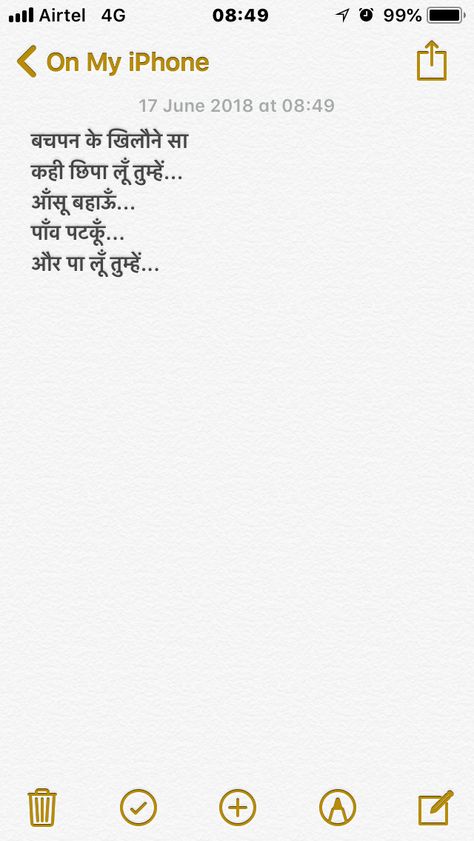 Airtel 4G 08:49 99%
On My iPhone
17 June 2018 at 08:49
बचपन के खिलौने सा
कही छिपा लूँ तुम्हें...
आँसू बहाऊँ...
पाँव पटकूँ...
और पा लूँ तुम्हें...